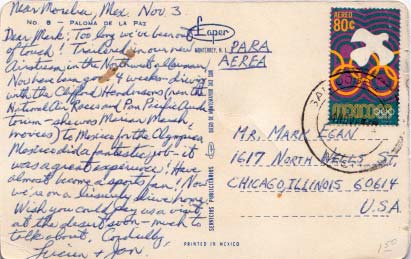 Near Morelia, Mex. Nov. 3
No. 8 - PALOMA DE LA PAZ
Dear Mark: Too long we've been out
of touch! Trailered in our new
Airstream in the Northwest all summer,
Now have been gone 4 weeks - driving
with the Clifford Hendersons (ran the
National Air Races and Pan Pacific Auditorium
town - she was Marian Marsh,
movies) to Mexico for the Olympics.
Mexico did a fantastic job - it
was a great experience! Have
almost become a sports fan! Now
we're on a leisurely drive home.
Wish you could pay us a visit
at the desert soon - much to
talk about. Cordially,
Lucien + Jan.
Laper
MONTERREY, N. L.
SERVICIOS PUBLICITARIOS
PRINTED IN MEXICO
PARA
AEREA
AEREO
80¢
MEXICO68
MR. MARK EGAN
1617 NORTH WELLS ST.
CHICAGO, ILLINOIS 60614
U.S.A.
1.50